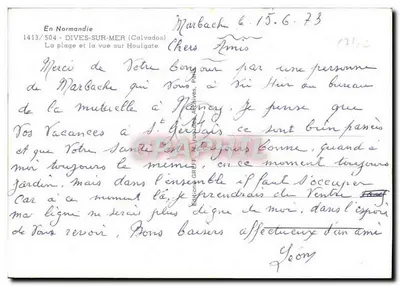 En Normandie
1413/504 - DIVES-SUR-MER (Calvados)
La plage et la vue sur Houlgate
Marbache le 15.6.73
Chers Amis
Merci de Votre bonjour par une personne
de Marbache qui Vous a Vu Hier au bureau
de la mutuelle à Nancy. Je pense que
Vos Vacances à St Gervais ce sont bien passées
et que Votre Santé est toujours bonne, quand a
moi toujours le même, en ce moment toujours
jardin, mais dans l'ensemble il faut s'occuper
Car à ce moment là, je prendrais du Ventre
ma ligne ne serais plus digne de moi, dans l'espoir
de Vous revoir, Bons baisers affectueux d'un ami
Léon